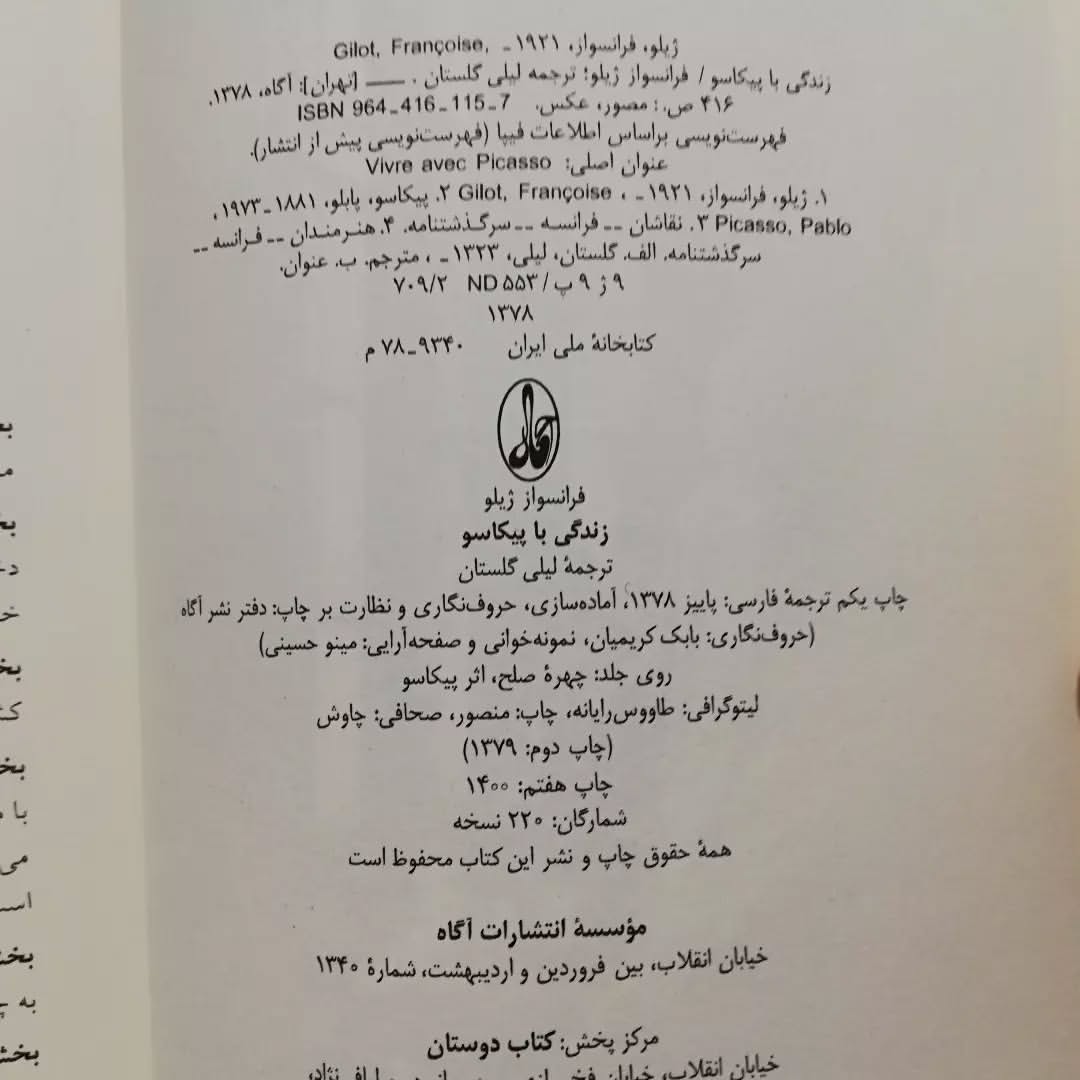 ژیلو، فرانسواز، ۱۹۲۱ - Gilot, Françoise,
زندگی با پیکاسو / فرانسواز ژیلو؛ ترجمه لیلی گلستان . ــــ [تهران]: آگاه، ۱۳۷۸.
۴۱۶ ص.: مصور، عکس. ISBN 964-416-115-7
فهرست‌نویسی براساس اطلاعات فیپا (فهرست‌نویسی پیش از انتشار).
عنوان اصلی: Vivre avec Picasso
۱. ژیلو، فرانسواز، ۱۹۲۱ - ، Gilot, Françoise ۲. پیکاسو، پابلو، ۱۸۸۱ - ۱۹۷۳،
Picasso, Pablo ۳. نقاشان -- فرانسه -- سرگذشتنامه. ۴. هنرمندان -- فرانسه --
سرگذشتنامه. الف. گلستان، لیلی، ۱۳۲۳ - ، مترجم. ب. عنوان.
۹ ژ ۹ پ / ND ۵۵۳ ۷۰۹/۲
۱۳۷۸
کتابخانهٔ ملی ایران ۹۳۴۰-۷۸ م
آگاه
فرانسواز ژیلو
زندگی با پیکاسو
ترجمهٔ لیلی گلستان
چاپ یکم ترجمهٔ فارسی: پاییز ۱۳۷۸، آماده‌سازی، حروف‌نگاری و نظارت بر چاپ: دفتر نشر آگاه
(حروف‌نگاری: بابک کریمیان، نمونه‌خوانی و صفحه‌آرایی: مینو حسینی)
روی جلد: چهرهٔ صلح، اثر پیکاسو
لیتوگرافی: طاووس‌رایانه، چاپ: منصور، صحافی: چاوش
(چاپ دوم: ۱۳۷۹)
چاپ هفتم: ۱۴۰۰
شمارگان: ۲۲۰ نسخه
همهٔ حقوق چاپ و نشر این کتاب محفوظ است
مؤسسهٔ انتشارات آگاه
خیابان انقلاب، بین فروردین و اردیبهشت، شمارهٔ ۱۳۴۰
مرکز پخش: کتاب دوستان
خیابان انقلاب، خیابان